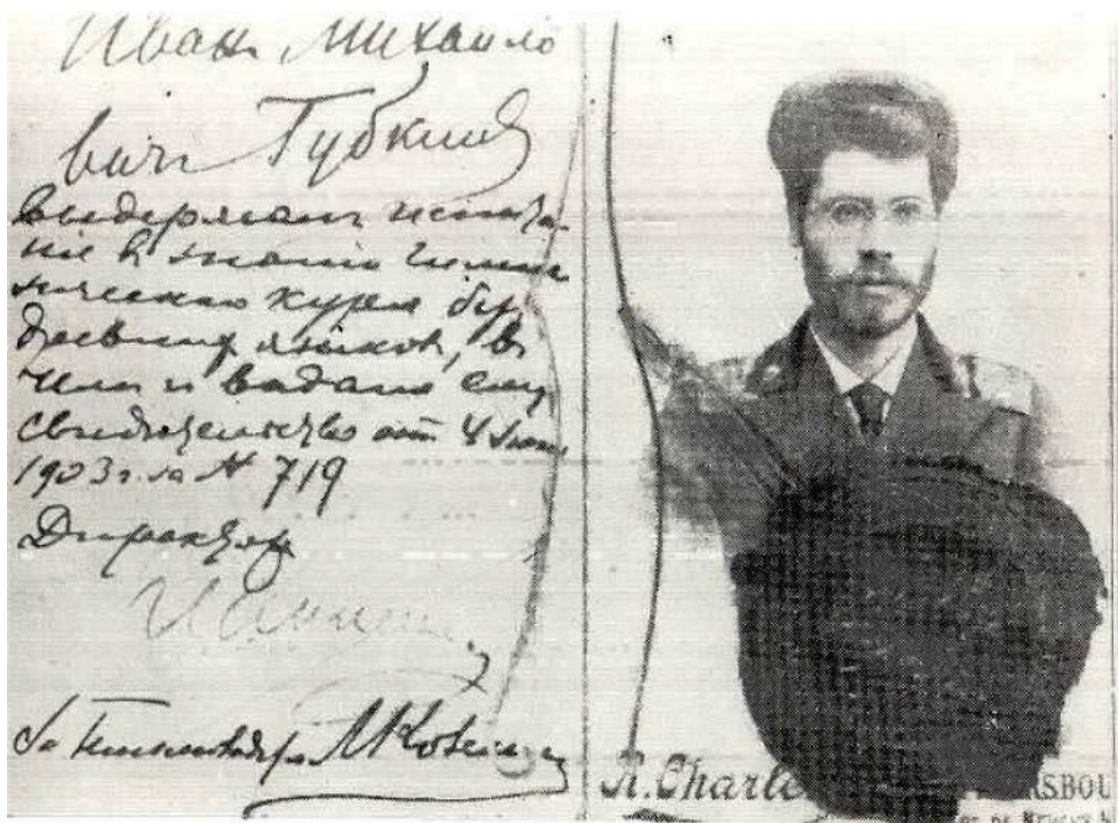 Иван Михайло
вич Губкин
выдержал испыта-
ние в знании гимна
зического курса без
древних языков, в
чем и выдано ему
свидетельство от 4
1903 г. за N 719
Директор
За письмоводителя
R. Charle RSBOU